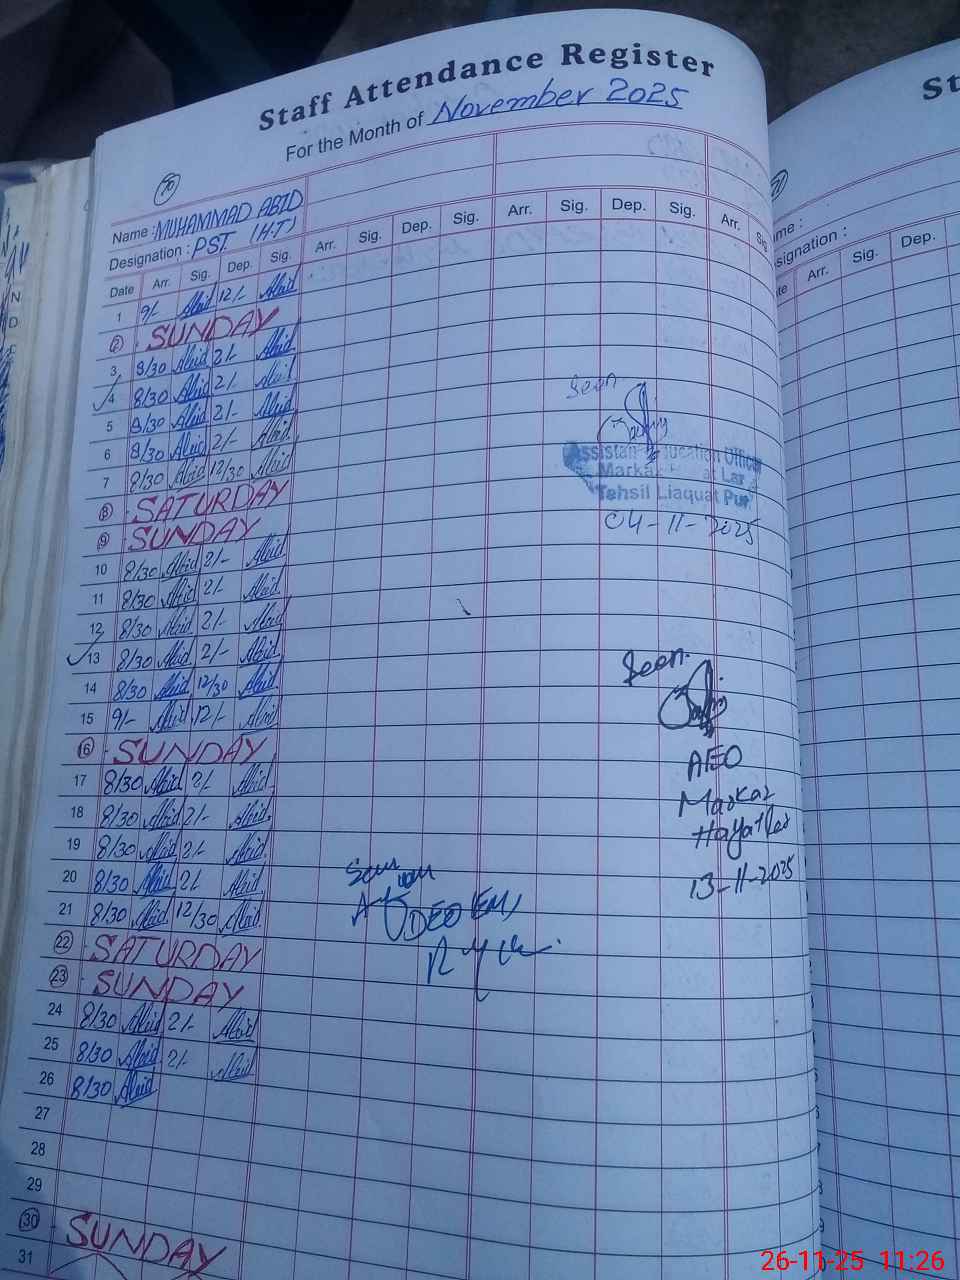 Staff Attendance Register
For the Month of November 2025
50
Name : MUHAMMAD ABID
Designation : PST (H.T)
Date Arr. Sig. Dep. Sig. Arr. Sig. Dep. Sig. Arr. Sig. Dep. Sig. Arr. Sig.
1 9/- Abid 12/- Abid
2 SUNDAY
3 8/30 Abid 2/- Abid
4 8/30 Abid 2/- Abid
5 8/30 Abid 2/- Abid
6 8/30 Abid 2/- Abid
7 8/30 Abid 12/30 Abid
8 SATURDAY
9 SUNDAY
10 8/30 Abid 2/- Abid
11 8/30 Abid 2/- Abid
12 8/30 Abid 2/- Abid
13 8/30 Abid 2/- Abid
14 8/30 Abid 12/30 Abid
15 9/- Abid 12/- Abid
16 SUNDAY
17 8/30 Abid 2/- Abid
18 8/30 Abid 2/- Abid
19 8/30 Abid 2/- Abid
20 8/30 Abid 2/- Abid
21 8/30 Abid 12/30 Abid
22 SATURDAY
23 SUNDAY
24 8/30 Abid 2/- Abid
25 8/30 Abid 2/- Abid
26 8/30 Abid
27
28
29
30 SUNDAY
31
Seen
Education Officer
Tehsil Liaquat Pur
04-11-2025
Seen
AEO
Markaz
13-11-2025
DEO
St
me :
signation :
te Arr. Sig. Dep.
26-11-25 11:26